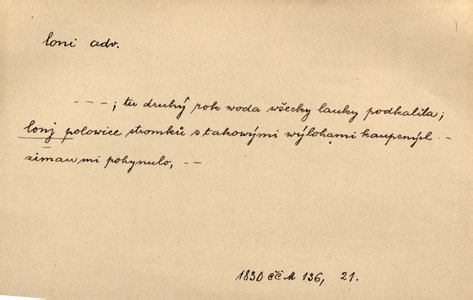 loni adv.
– – – ; tu druhý rok woda wšecky lauky podkalila;
lonj polowice stromků s takowými wýlohami kaupených – –
zimau mi pohynulo, – –
1830 ČČM 136, 21.